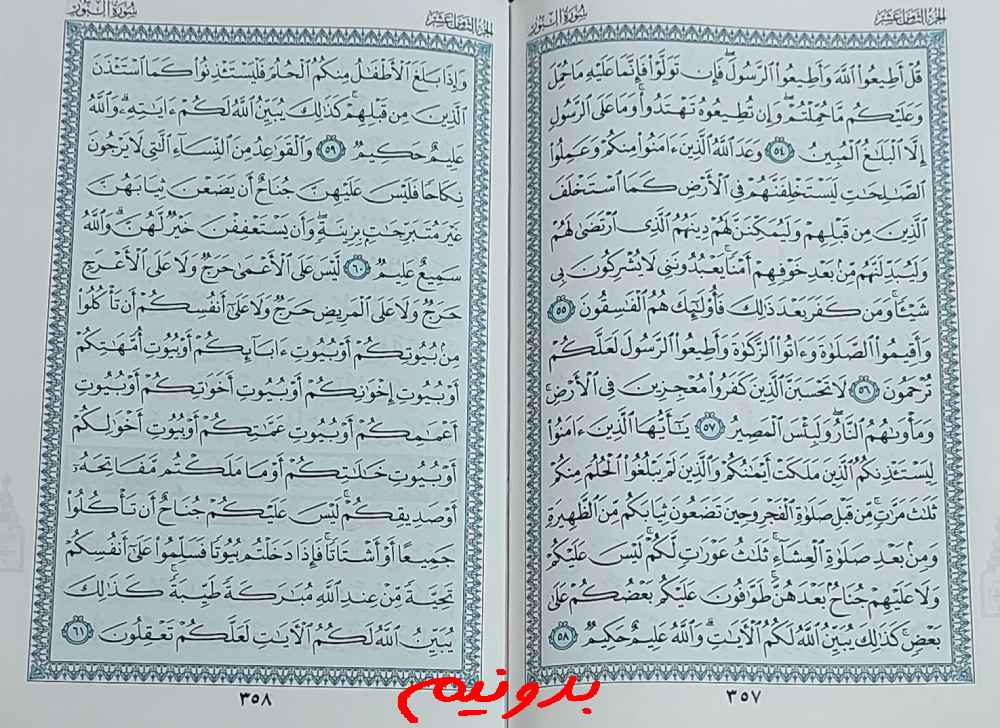 سُورَةُ النُّورِ
الجُزْءُ الثَّامِنَ عَشَرَ
قُلْ أَطِيعُوا۟ ٱللَّهَ وَأَطِيعُوا۟ ٱلرَّسُولَ ۖ فَإِن تَوَلَّوْا۟ فَإِنَّمَا عَلَيْهِ مَا حُمِّلَ
وَعَلَيْكُم مَّا حُمِّلْتُمْ ۖ وَإِن تُطِيعُوهُ تَهْتَدُوا۟ ۚ وَمَا عَلَى ٱلرَّسُولِ
إِلَّا ٱلْبَلَٰغُ ٱلْمُبِينُ ٥٤ وَعَدَ ٱللَّهُ ٱلَّذِينَ ءَامَنُوا۟ مِنكُمْ وَعَمِلُوا۟
ٱلصَّٰلِحَٰتِ لَيَسْتَخْلِفَنَّهُمْ فِى ٱلْأَرْضِ كَمَا ٱسْتَخْلَفَ
ٱلَّذِينَ مِن قَبْلِهِمْ وَلَيُمَكِّنَنَّ لَهُمْ دِينَهُمُ ٱلَّذِى ٱرْتَضَىٰ لَهُمْ
وَلَيُبَدِّلَنَّهُم مِّنۢ بَعْدِ خَوْفِهِمْ أَمْنًا ۚ يَعْبُدُونَنِى لَا يُشْرِكُونَ بِى
شَيْـًٔا ۚ وَمَن كَفَرَ بَعْدَ ذَٰلِكَ فَأُو۟لَٰٓئِكَ هُمُ ٱلْفَٰسِقُونَ ٥٥
وَأَقِيمُوا۟ ٱلصَّلَوٰةَ وَءَاتُوا۟ ٱلزَّكَوٰةَ وَأَطِيعُوا۟ ٱلرَّسُولَ لَعَلَّكُمْ
تُرْحَمُونَ ٥٦ لَا تَحْسَبَنَّ ٱلَّذِينَ كَفَرُوا۟ مُعْجِزِينَ فِى ٱلْأَرْضِ ۚ
وَمَأْوَىٰهُمُ ٱلنَّارُ ۖ وَلَبِئْسَ ٱلْمَصِيرُ ٥٧ يَٰٓأَيُّهَا ٱلَّذِينَ ءَامَنُوا۟
لِيَسْتَـْٔذِنكُمُ ٱلَّذِينَ مَلَكَتْ أَيْمَٰنُكُمْ وَٱلَّذِينَ لَمْ يَبْلُغُوا۟ ٱلْحُلُمَ مِنكُمْ
ثَلَٰثَ مَرَّٰتٍ ۚ مِّن قَبْلِ صَلَوٰةِ ٱلْفَجْرِ وَحِينَ تَضَعُونَ ثِيَابَكُم مِّنَ ٱلظَّهِيرَةِ
وَمِنۢ بَعْدِ صَلَوٰةِ ٱلْعِشَآءِ ۚ ثَلَٰثُ عَوْرَٰتٍ لَّكُمْ ۚ لَيْسَ عَلَيْكُمْ
وَلَا عَلَيْهِمْ جُنَاحٌۢ بَعْدَهُنَّ ۚ طَوَّٰفُونَ عَلَيْكُم بَعْضُكُمْ عَلَىٰ
بَعْضٍ ۚ كَذَٰلِكَ يُبَيِّنُ ٱللَّهُ لَكُمُ ٱلْءَايَٰتِ ۗ وَٱللَّهُ عَلِيمٌ حَكِيمٌ ٥٨
٣٥٧
سُورَةُ النُّورِ
الجُزْءُ الثَّامِنَ عَشَرَ
وَإِذَا بَلَغَ ٱلْأَطْفَٰلُ مِنكُمُ ٱلْحُلُمَ فَلْيَسْتَـْٔذِنُوا۟ كَمَا ٱسْتَـْٔذَنَ
ٱلَّذِينَ مِن قَبْلِهِمْ ۚ كَذَٰلِكَ يُبَيِّنُ ٱللَّهُ لَكُمْ ءَايَٰتِهِۦ ۗ وَٱللَّهُ
عَلِيمٌ حَكِيمٌ ٥٩ وَٱلْقَوَٰعِدُ مِنَ ٱلنِّسَآءِ ٱلَّٰتِى لَا يَرْجُونَ
نِكَاحًا فَلَيْسَ عَلَيْهِنَّ جُنَاحٌ أَن يَضَعْنَ ثِيَابَهُنَّ
غَيْرَ مُتَبَرِّجَٰتٍۭ بِزِينَةٍ ۖ وَأَن يَسْتَعْفِفْنَ خَيْرٌ لَّهُنَّ ۗ وَٱللَّهُ
سَمِيعٌ عَلِيمٌ ٦٠ لَّيْسَ عَلَى ٱلْأَعْمَىٰ حَرَجٌ وَلَا عَلَى ٱلْأَعْرَجِ
حَرَجٌ وَلَا عَلَى ٱلْمَرِيضِ حَرَجٌ وَلَا عَلَىٰٓ أَنفُسِكُمْ أَن تَأْكُلُوا۟
مِنۢ بُيُوتِكُمْ أَوْ بُيُوتِ ءَابَآئِكُمْ أَوْ بُيُوتِ أُمَّهَٰتِكُمْ
أَوْ بُيُوتِ إِخْوَٰنِكُمْ أَوْ بُيُوتِ أَخَوَٰتِكُمْ أَوْ بُيُوتِ
أَعْمَٰمِكُمْ أَوْ بُيُوتِ عَمَّٰتِكُمْ أَوْ بُيُوتِ أَخْوَٰلِكُمْ
أَوْ بُيُوتِ خَٰلَٰتِكُمْ أَوْ مَا مَلَكْتُم مَّفَاتِحَهُۥٓ
أَوْ صَدِيقِكُمْ ۚ لَيْسَ عَلَيْكُمْ جُنَاحٌ أَن تَأْكُلُوا۟
جَمِيعًا أَوْ أَشْتَاتًا ۚ فَإِذَا دَخَلْتُم بُيُوتًا فَسَلِّمُوا۟ عَلَىٰٓ أَنفُسِكُمْ
تَحِيَّةً مِّنْ عِندِ ٱللَّهِ مُبَٰرَكَةً طَيِّبَةً ۚ كَذَٰلِكَ
يُبَيِّنُ ٱللَّهُ لَكُمُ ٱلْءَايَٰتِ لَعَلَّكُمْ تَعْقِلُونَ ٦١
٣٥٨
بدونیم